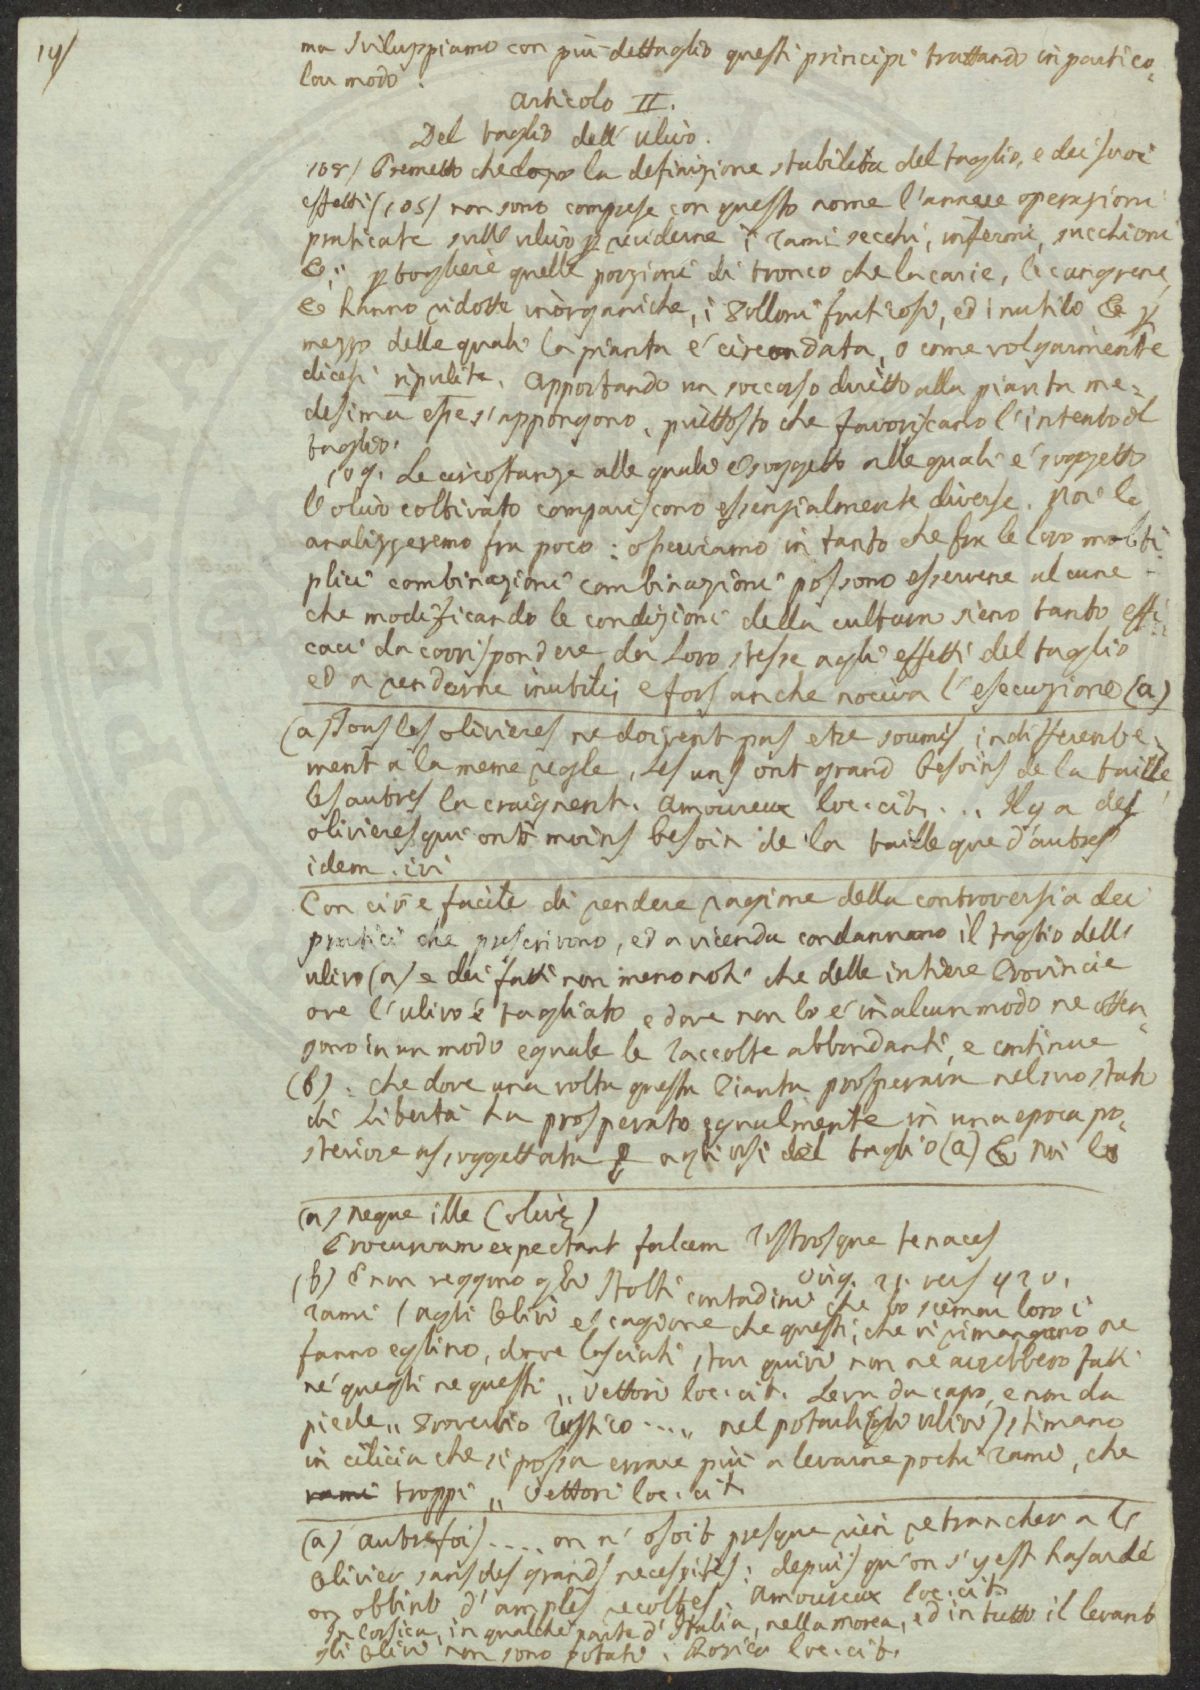 14/
ma sviluppiamo con più dettaglio questi principi trattando in partico-
lar modo.
Articolo II.
Del taglio dell'ulivo.
108/ Premetto che dopo la definizione stabilita del taglio, e dei suoi
effetti (105) non sono comprese con questo nome l'annue operazioni
praticate sull'ulivo p reciderne i rami secchi, infermi, succhioni
&; p togliere quelle porzioni di tronco che la carie, le cangrene,
& hanno ridotte inorganiche, i polloni fruticosi, ed inutili & p
mezzo delle quali la pianta è circondata, o come volgarmente
dicesi ripulita. Apportando un soccorso diretto alla pianta me-
desima esse s'appongono, piuttosto che favoriscano l'intento del
taglio.
109. Le circostanze alle quali è soggetto alle quali è soggetto
l'olivo coltivato compariscono essenzialmente diverse. Noi le
analizzeremo fra poco: osserviamo in tanto che fra le loro molti-
plici combinazioni combinazioni possono esservene alcune
che modificando le condizioni della cultura sieno tanto effi-
caci da corrispondere da loro stesse agli effetti del taglio
ed a renderne inutile, e fors'anche nociva l'esecuzione (a)
(a) Tous les oliviers ne doivent pas etre soumis indifferente-
ment a la meme regle, les uns ont grand besoins de la taille
les autres la craignent. Amoureux loc. cit. ... Il y a des
olivieres qui ont moins besoin de la taille que d'autres
idem. ivi
Con ciò è facile di rendere ragione della controversia dei
pratici che prescrivono, ed a vicenda condannano il taglio dell'
ulivo (a) e dei fatti non meno noti che delle intiere Provincie
ove l'ulivo è tagliato e dove non lo è in alcun modo ne otten-
gono in un modo eguale le raccolte abbondanti, e continue
(b). che dove una volta questa Pianta prosperava nel suo stato
di Libertà ha prosperato egualmente in una epoca po-
steriore assoggettata agli usi del taglio (a) & noi lo
(a) neque ille (olive)
Procurvam expectant falcem rastrosque tenaces
Virg. 2. vers 420.
(b) E non veggono gli stolti contadini che lo scemar loro i
rami (agli Olivi) è cagione che questi, che vi rimangano ne
fanno eglino, dove lasciati star quivi non ne avrebbero fatti
ne quegli ne questi ,, Vettori loc. cit. Leva da capo, e non da
piede ,, Proverbio Rustico ... ,, nel potarli (gli ulivi) stimano
in cilicia che si possa errare più a levarne pochi rami, che
rami troppi ,, Vettori loc. cit.
(a) autrefois .... on n'osoit presque rien retrancher a l'
Olivier sans des grands necessités: depuis qu'on s'y est hasardé
on obtint d'amples recoltes. Amoureux loc. cit.
In Corsica, in qualche parte d'Italia, nella morea, ed in tutto il levant
gli Olivi non sono potati. Rosier loc. cit.